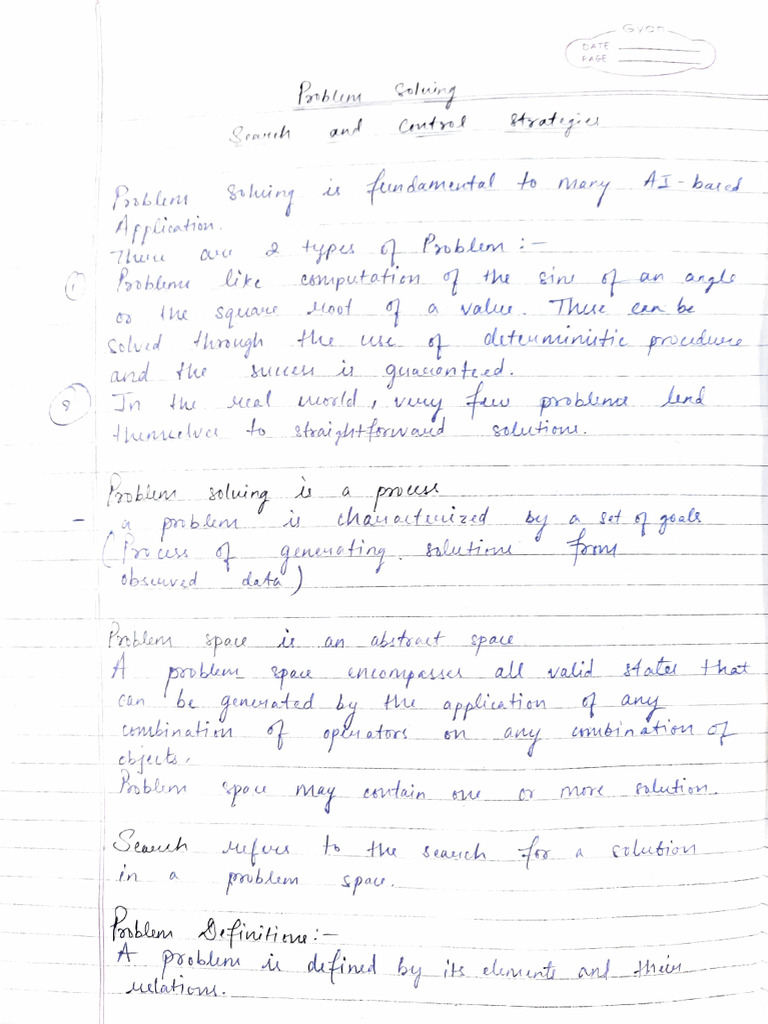 Gyan
DATE
PAGE
Problem Solving
Search and Control Strategies
Problem solving is fundamental to many AI-based
Application.
There are 2 types of Problem:-
1 Problems like computation of the sine of an angle
or the square root of a value. These can be
solved through the use of deterministic procedure
and the success is guaranteed.
2 In the real world, very few problems lend
themselves to straightforward solutions.
Problem solving is a process
- a problem is characterized by a set of goals
(Process of generating solutions from
observed data)
Problem space is an abstract space
A problem space encompasses all valid states that
can be generated by the application of any
combination of operators on any combination of
objects.
Problem space may contain one or more solution.
Search refers to the search for a solution
in a problem space.
Problem Definitions:-
A problem is defined by its elements and their
relations.